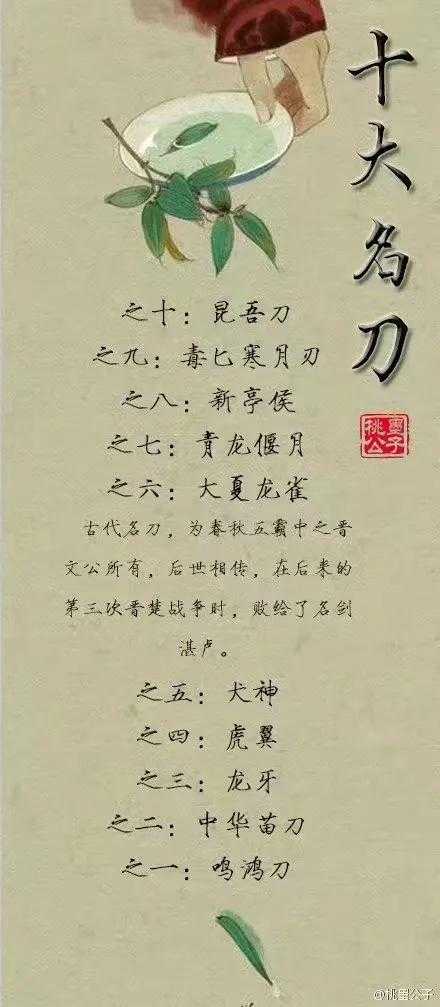 十大名刀
桃墨公子
之十：昆吾刀
之九：毒匕寒月刃
之八：新亭侯
之七：青龙偃月
之六：大夏龙雀
古代名刀，为春秋五霸中之晋
文公所有，后世相传，在后来的
第三次晋楚战争时，败给了名剑
湛卢。
之五：犬神
之四：虎翼
之三：龙牙
之二：中华苗刀
之一：鸣鸿刀
@桃墨公子